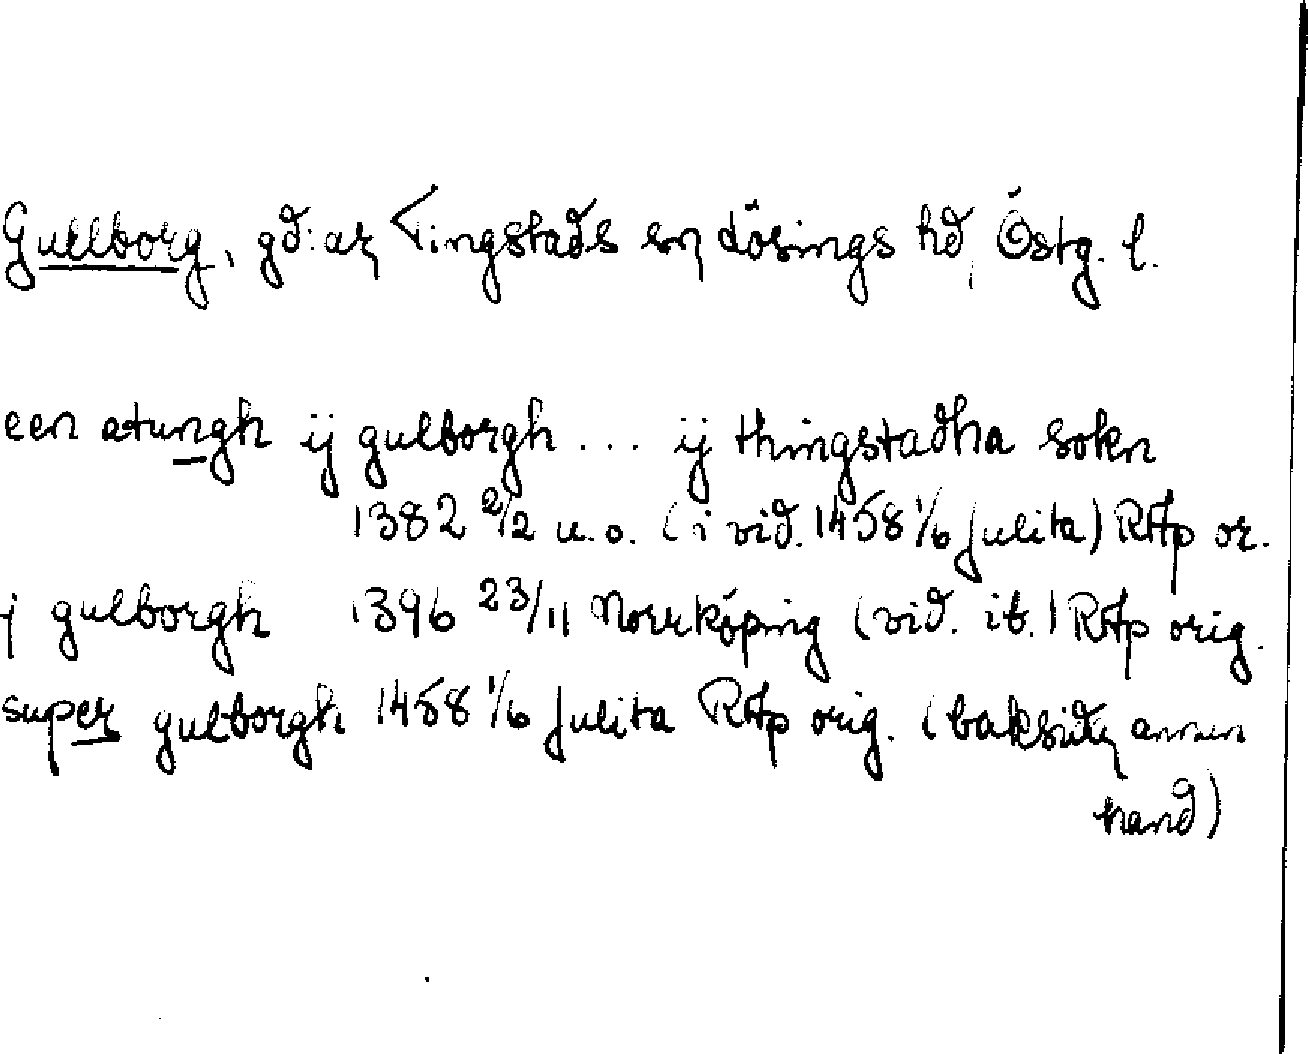 Gullborg, gd:ar Tingstads sn Lösings hd, Östg. l.
een atungh ij gulborgh ... ij thingstadha sokn
1382 2/2 u.o. (i vid. 1458 1/6 Julita) RAp or.
j gulborgh 1396 23/11 Norrköping (vid. ib.) RAp orig.
super gulborgh 1458 1/6 Julita RAp orig. (baksida, annan
hand)